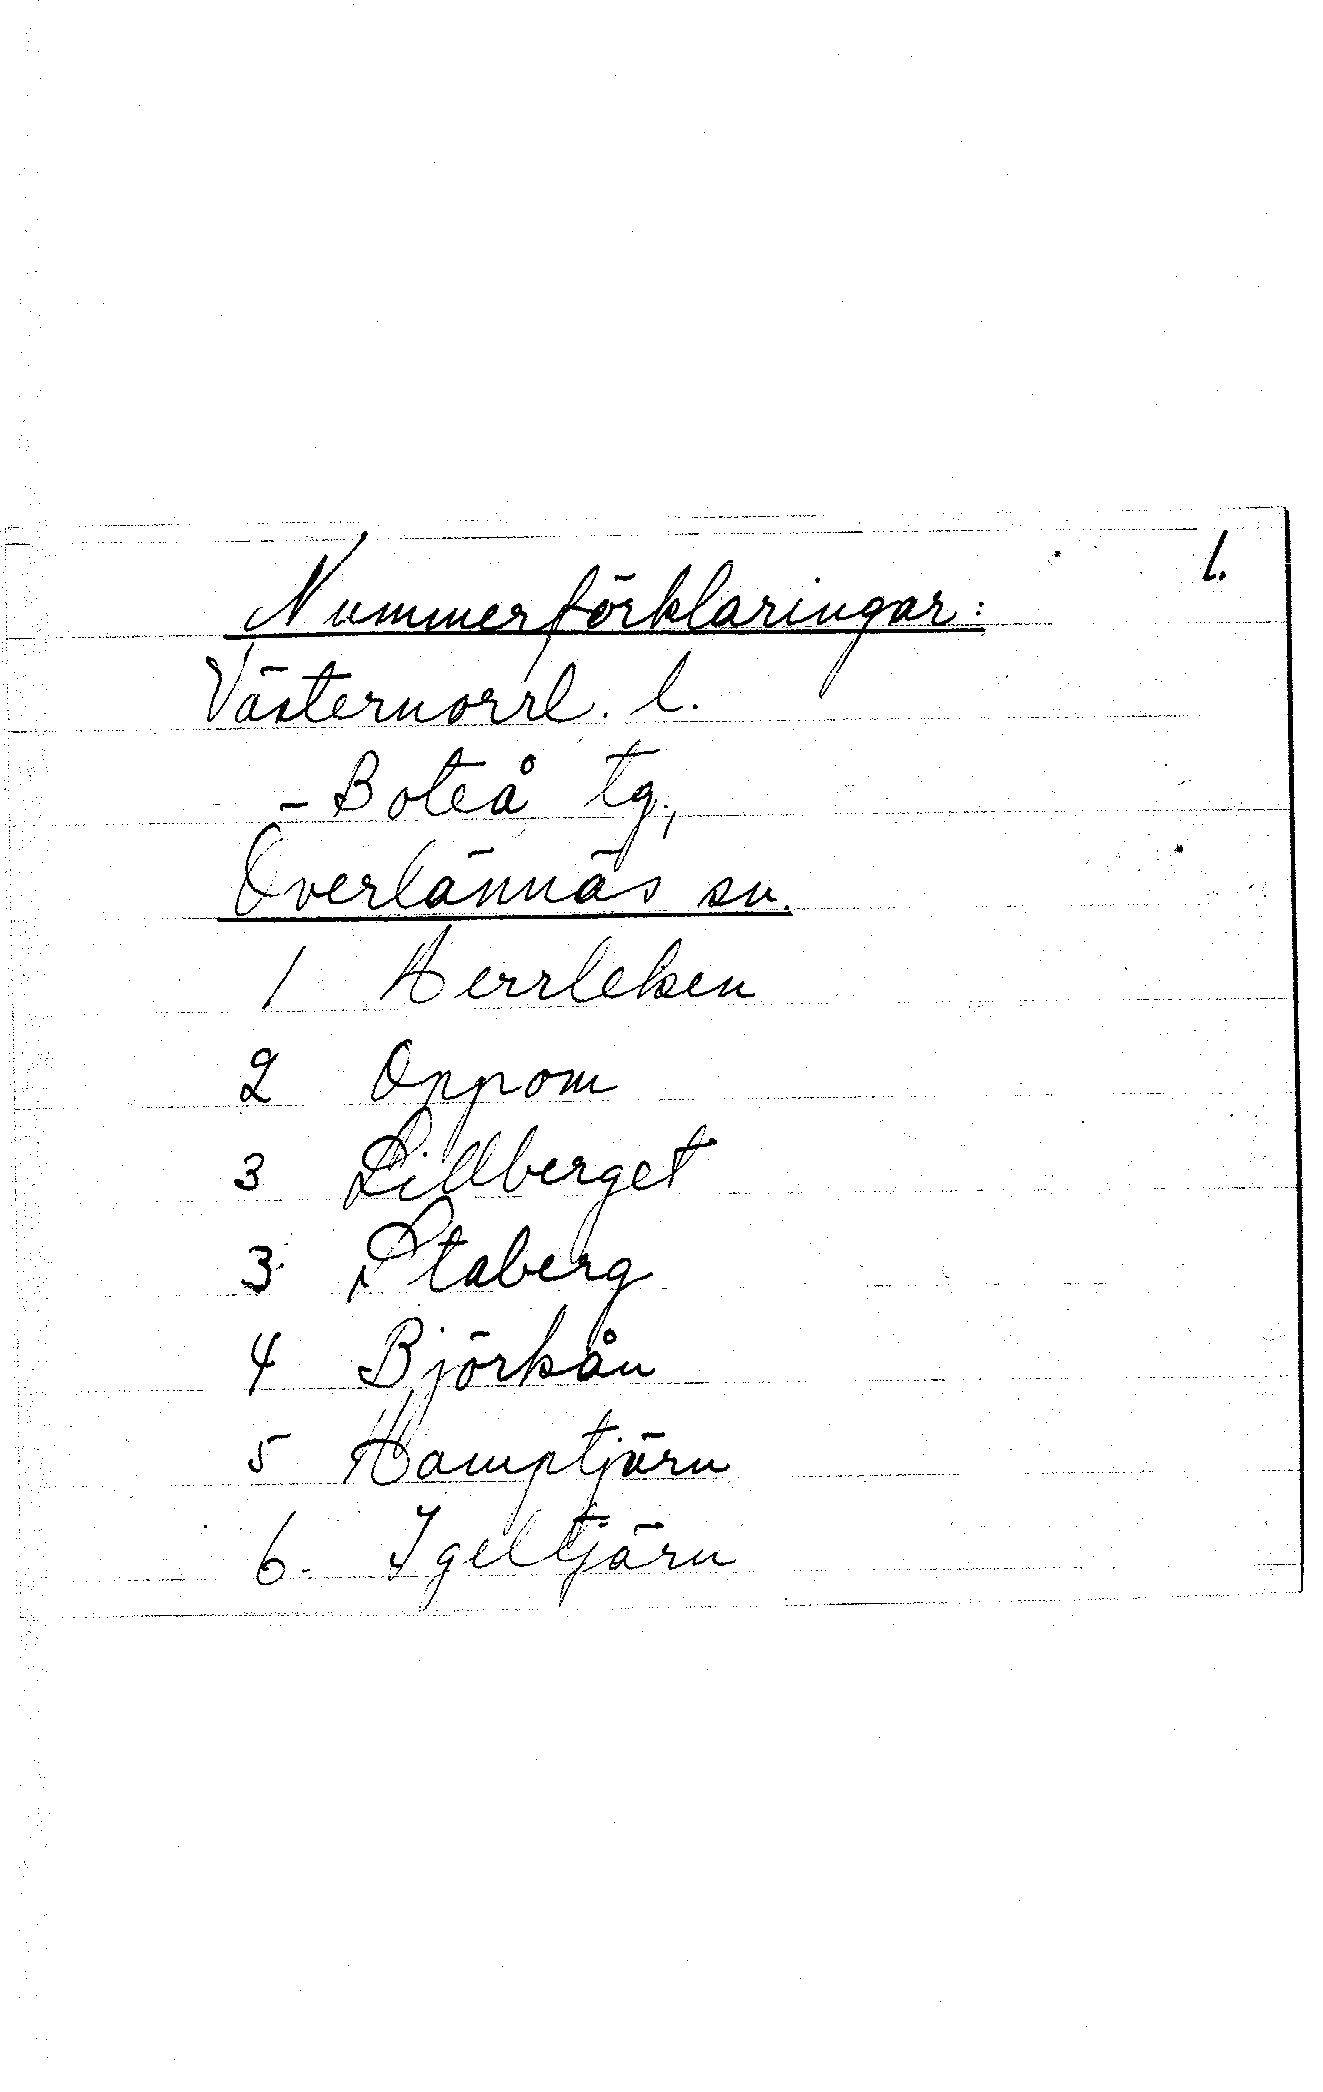 1.
Nummerförklaringar:
Västernorrl. l.
- Boteå tg.,
Överlännäs sn.
1 Herrleken
2 Oppom
3 Lillberget
3 Staberg
4 Björkån
5 Hamptjärn
6. Igeltjärn